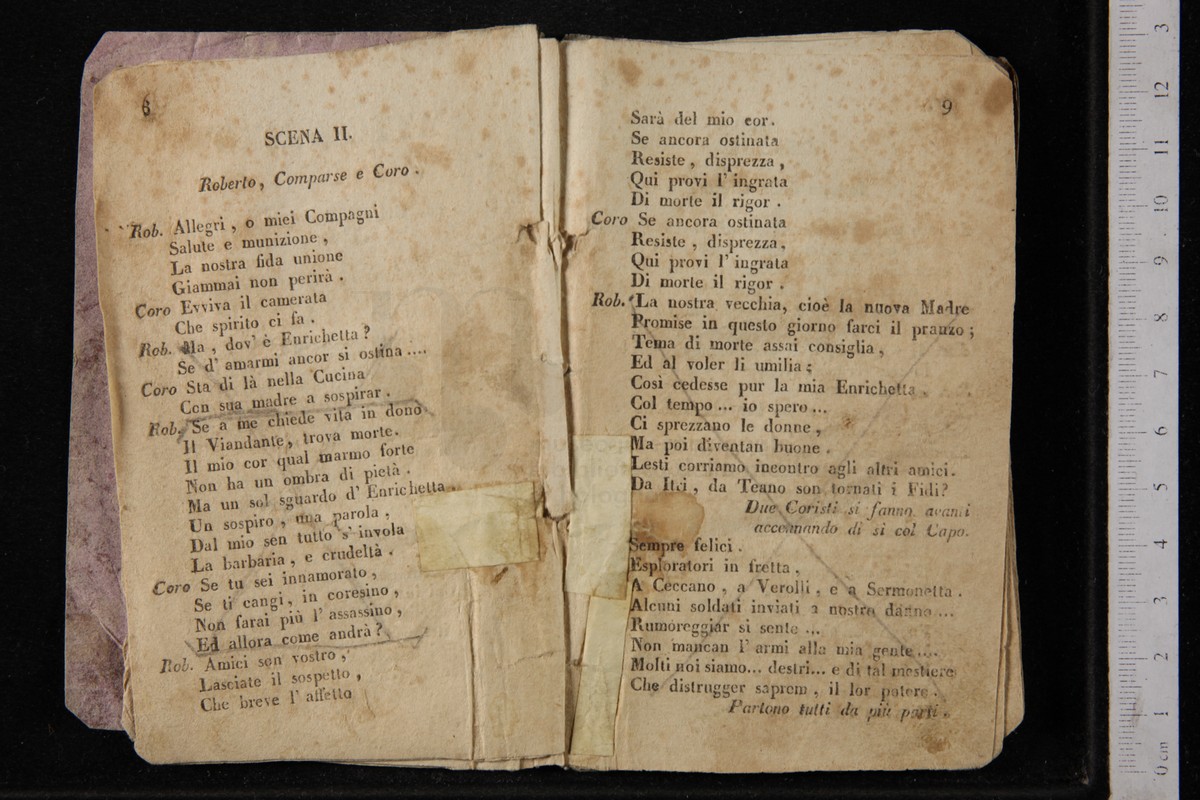 6
SCENA II.
Roberto, Comparse e Coro.
Rob. Allegri, o miei Compagni
Salute e munizione,
La nostra fida unione
Giammai non perirà.
Coro Evviva il camerata
Che spirito ci fa.
Rob. Ma, dov' è Enrichetta?
Se d' amarmi ancor si ostina....
Coro Sta di là nella Cucina
Con sua madre a sospirar.
Rob. Se a me chiede vita in dono
Il Viandante, trova morte.
Il mio cor qual marmo forte
Non ha un ombra di pietà.
Ma un sol sguardo d' Enrichetta..
Un sospiro, una parola,
Dal mio sen tutto s' invola
La barbaria, e crudeltà.
Coro Se tu sei innamorato,
Se ti cangi, in coresino,
Non farai più l' assassino,
Ed allora come andrà?
Rob. Amici son vostro,
Lasciate il sospetto,
Che breve l' affetto
9
Sarà del mio cor.
Se ancora ostinata
Resiste, disprezza,
Qui provi l' ingrata
Di morte il rigor.
Coro Se ancora ostinata
Resiste, disprezza,
Qui provi l' ingrata
Di morte il rigor.
Rob. La nostra vecchia, cioè la nuova Madre
Promise in questo giorno farci il pranzo;
Tema di morte assai consiglia,
Ed al voler li umilia;
Così cedesse pur la mia Enrichetta.
Col tempo... io spero...
Ci sprezzano le donne,
Ma poi diventan buone.
Lesti corriamo incontro agli altri amici.
Da Itri, da Teano son tornati i Fidi?
Due Coristi si fanno avanti
accennando di si col Capo.
Sempre felici.
Esploratori in fretta,
A Ceccano, a Verolli, e a Sermonetta.
Alcuni soldati inviati a nostro danno...
Rumoreggiar si sente...
Non mancan l' armi alla mia gente....
Molti noi siamo... destri... e di tal mestiere
Che distrugger saprem, il lor potere.
Partono tutti da più parti.
0 cm 1 2 3 4 5 6 7 8 9 10 11 12 3